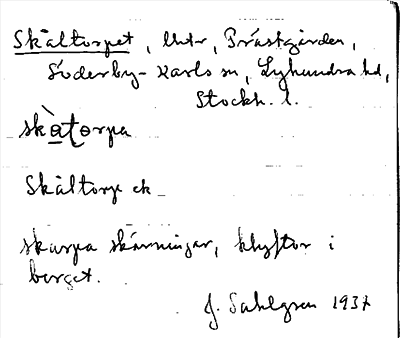 Skältorpet, Utr, Prästgården,
Söderby-Karls sn, Lyhundra hd,
Stockh. l.
Skältorp ek
skarpa skärningar, klyftor i
berget.
J. Sahlgren 1937